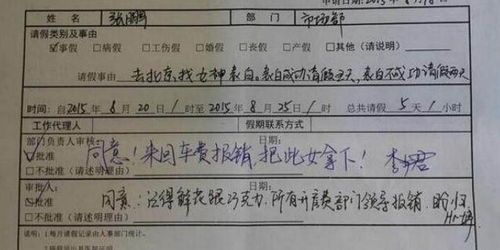 申请日2015年8月18日
姓 名 张鹏 部 门 市场部
请假类别及事由
☑事假 □病假 □工伤假 □婚假 □丧假 □产假 □其他（请说明）
请假事由 去北京,找女神表白,表白成功请假五天,表白不成功请假两天
时间：自2015年8月20日1时至2015年8月25日1时 总共请假5天1小时
工作代理人 假期联系方式
部门负责人审核： 日期：
☑批准 同意！来回车费报销,把此女拿下！ 李
□不批准（请述明理由）
审批人： 日期：
☑批准 同意：记得鲜花跟巧克力,所有开房费部门领导报销 盼归
□不批准（请述明理由） Hr
说明：1.每月请假记录由人事部门统计。